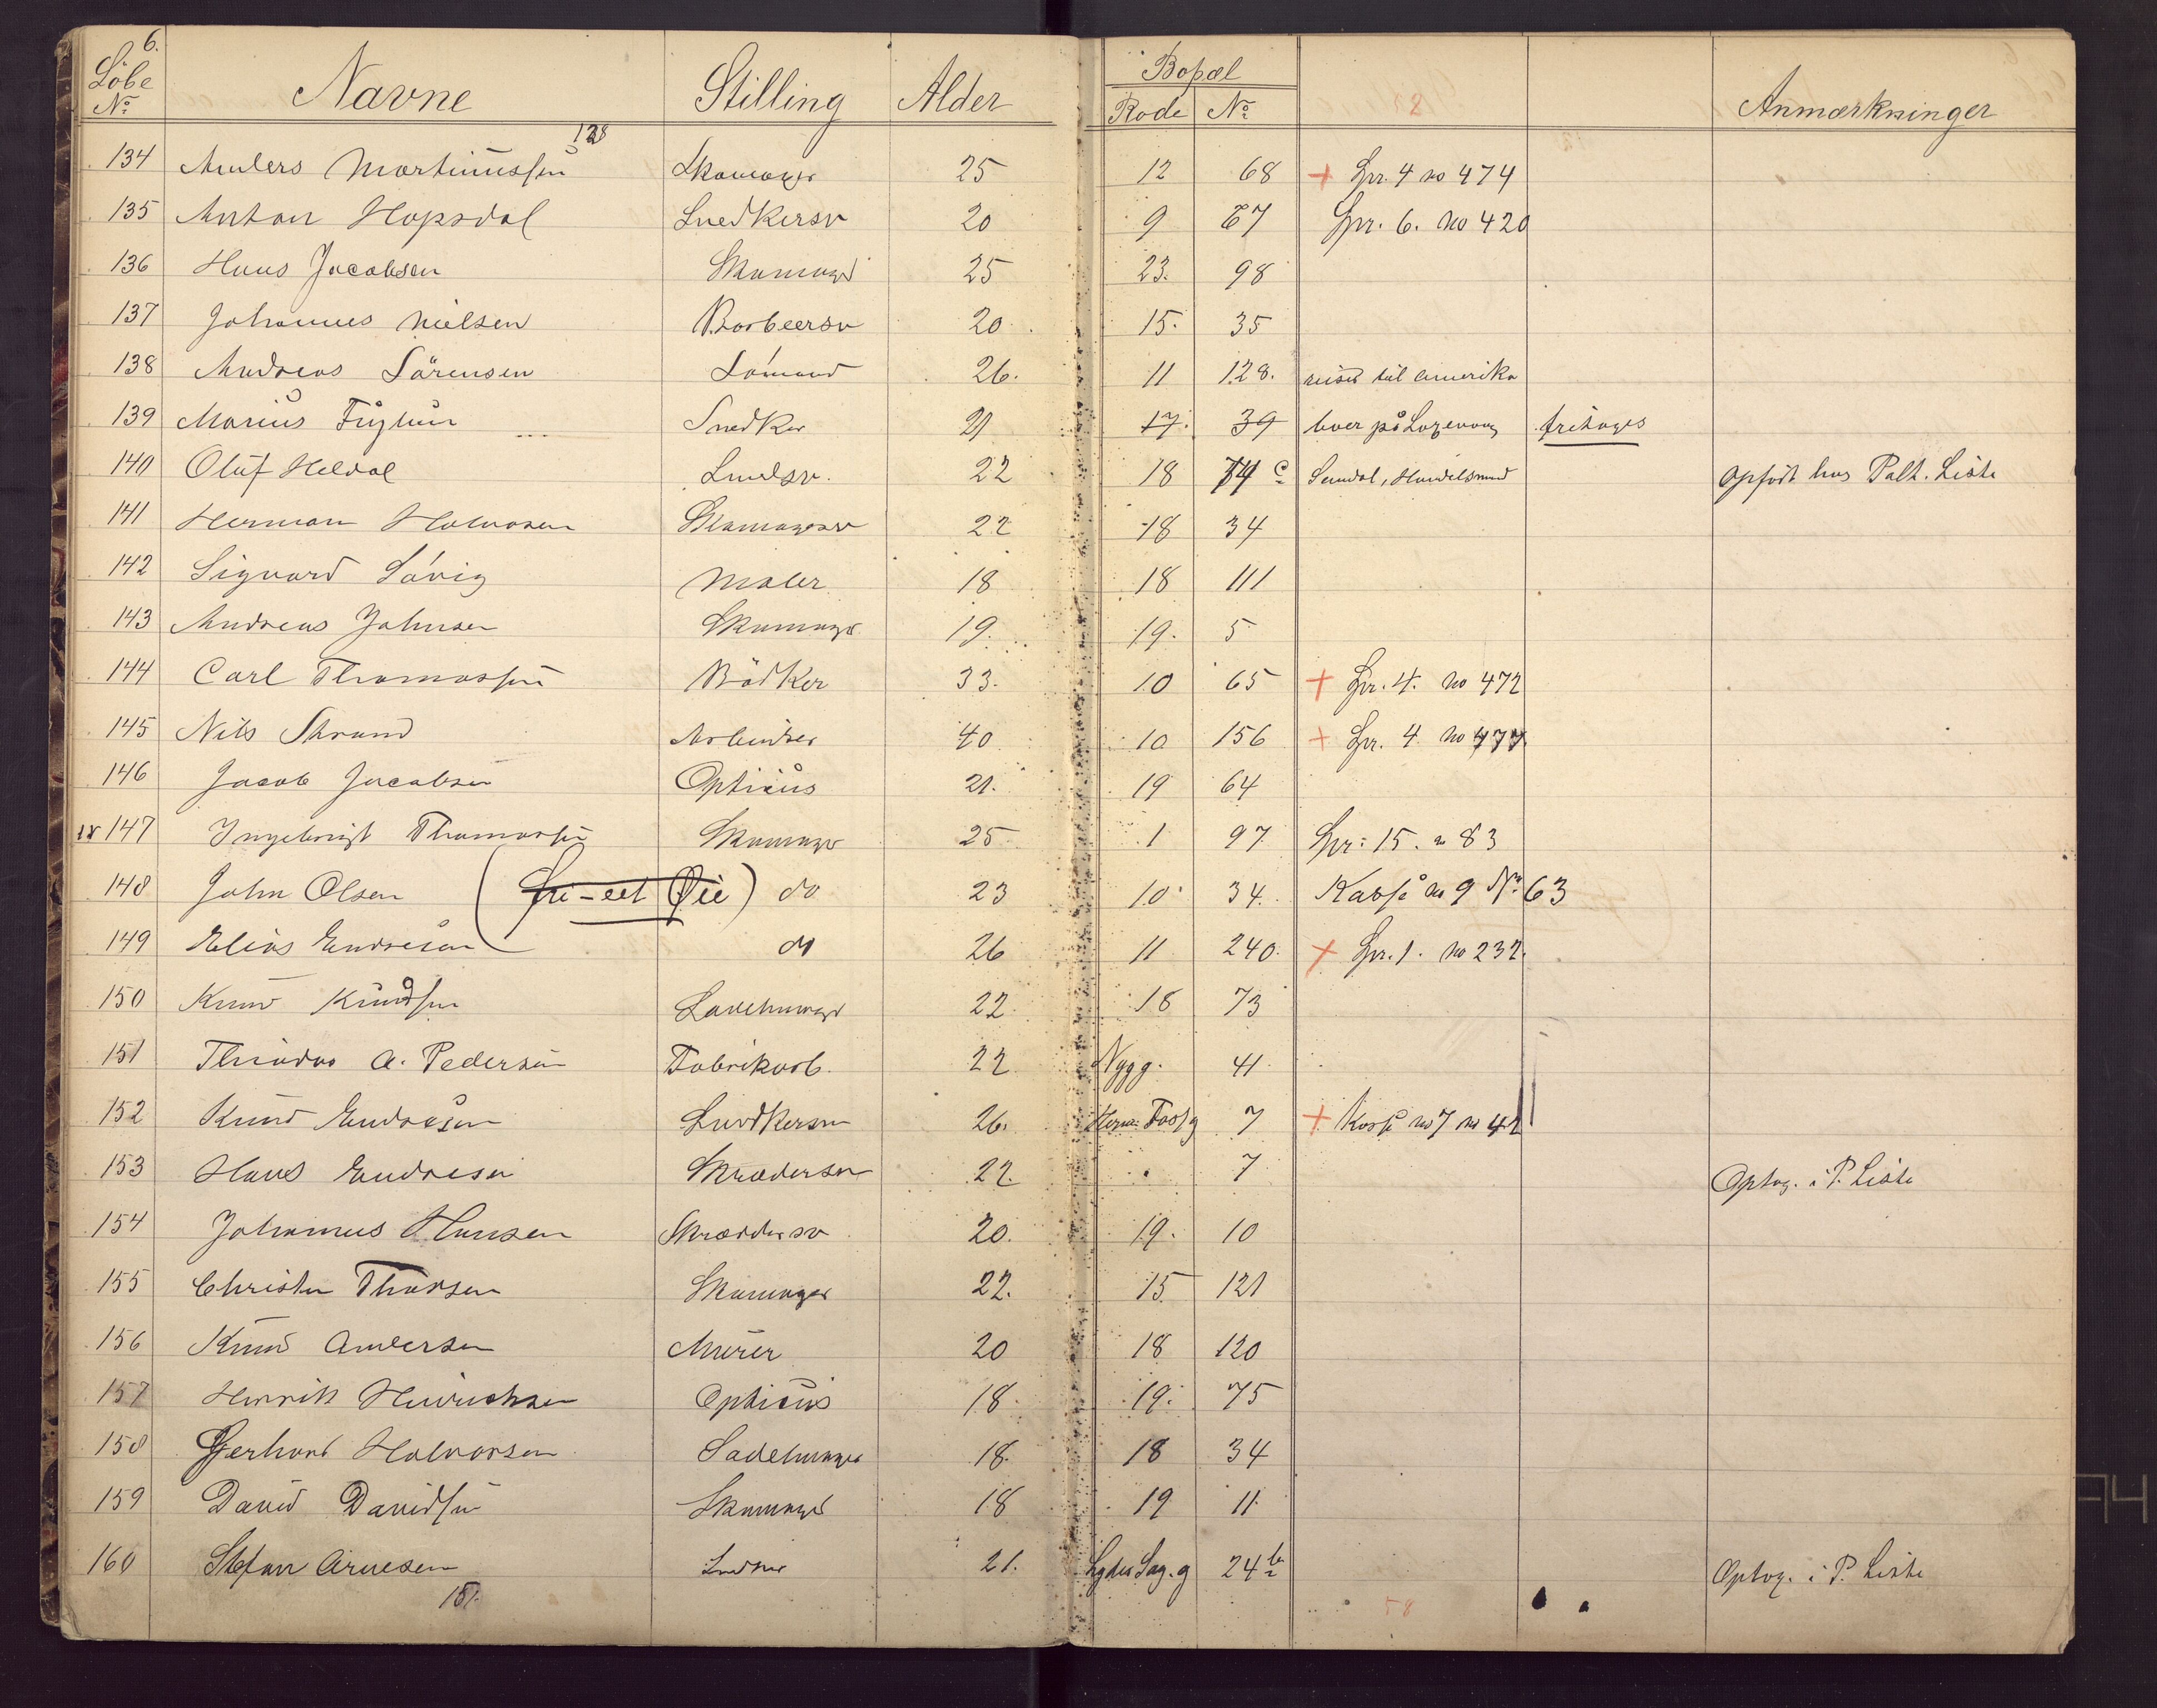 6.
Löbe No Navne Stilling Alder Bopæl Rode No Anmærkninger
128
134 Anders Martinussen Skomager 25 12 68 + Spr. 4 no 474
135 Anton Hopsdal Snedkersv 20 9 67 Spr. 6. no 420
136 Hans Jacobsen Skomager 25 23. 98
137 Johannes Nielsen Barbeersv 20 15. 35
138 Andreas Sörensen Sömand 26. 11 128. reist til Amerika
139 Marius Snedker 21 17. 39 boer på fritages
140 Oluf Heldal Snedsv. 22 18 74 c Handelsmand Opført hos Palt. Liste
141 Herman Halvorsen Skomagersv 22 18 34
142 Sigvard Sövig Maler 18 18 111
143 Andreas Johnsen Skomager 19. 19. 5
144 Carl Thomassen Bödker 33. 10 65 + Spr. 4. no 472
145 Nils Strand Arbeider 40 10 156 + Spr. 4 no 477
146 Jacob Jacobsen Opticus 21. 19 64
18 147 Ingebrigt Thomassen Skomager 25 1 97 Spr: 15. n 83
148 John Olsen (fri-eet Øie) do 23 10 34. Kasse no 9 No. 63
149 Elias Endresen do 26 11 240. + Spr. 1. no 232.
150 Knud Knudsen Sadelmager 22 18 73
151 Theodor A. Pedersen Fabrikarb. 22 Nygg. 41
152 Knud Endresen Snedkersv 26. Fossg 7 + Kasse no 7 no 42
153 Hans Endresen Skrædersv 22. " 7 Optag. i P. Liste
154 Johannes Hansen Skræddersv 20. 19. 10
155 Christen Thorsen Skomager 22. 15 121
156 Knud Andersen Murer 20 18 120
157 Henrik Henrichsen Opticus 18. 19. 75
158 Gerhard Halvorsen Sadelmager 18. 18 34
159 David Davidsen Skomager 18 19 11.
160 Stefan Arnesen Snedker 21. Lyder Sag. g 24 b Optag. i P. Liste
151. 58